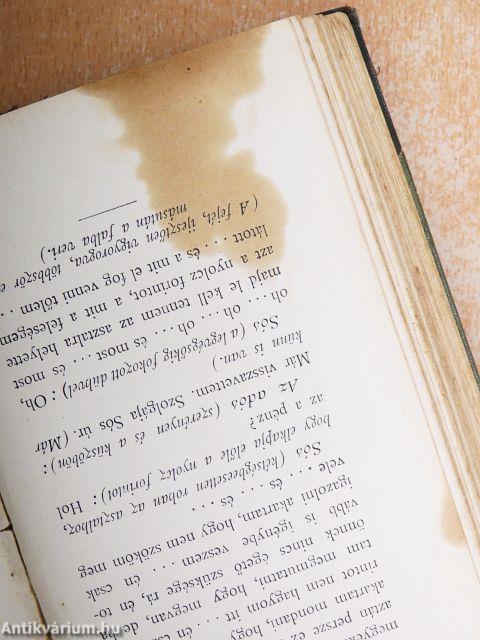 aztán persze ez
akartam mondani, hogy
rintot nem hagyom itt ... én
tam megmutatni, hogy megvan, de
önnek nincs égető szüksége rá, én to-
vább is igénybe veszem ... én csak
igazolni akartam, hogy nem szököm meg
vele ... és ... és ...
Sós (kétségbeesetten rohan az asztalhoz,
hogy elkapja előle a nyolcz forintot): Hol
az a pénz?
Az adós (szerényen és a küszöbön):
Már visszavettem. Szolgája Sós úr. (Már
künn is van.)
Sós (a legvégsőkig fokozott dühvel): Oh,
oh ... oh ... oh ... és most ... és most
majd le kell tennem az asztalra helyette
azt a nyolcz forintot, a mit a feleségem
látott ... és a mit el fog venni tőlem ...
(A fejét, ijesztően vigyorogva, többször e
másután a falba veri.)
Antikvárium.hu